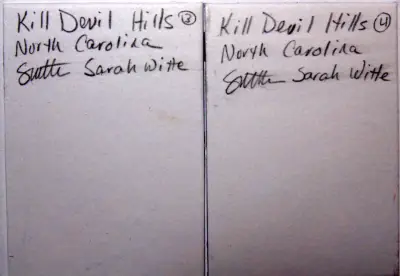 Kill Devil Hills ③
North Carolina
Sarah Witte
Kill Devil Hills ④
North Carolina
Sarah Witte